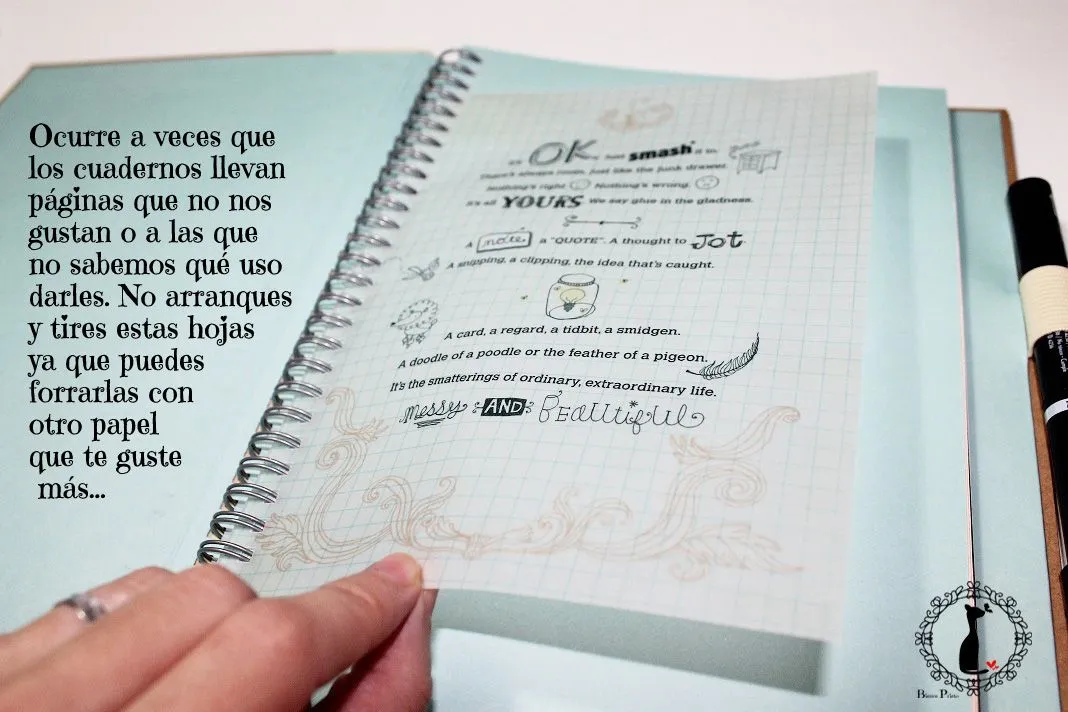 Ocurre a veces que
los cuadernos llevan
páginas que no nos
gustan o a las que
no sabemos qué uso
darles. No arranques
y tires estas hojas
ya que puedes
forrarlas con
otro papel
que te guste
más...
It's OK. Just smash* it in.
There's always room, just like the junk drawer.
Nothing's right Nothing's wrong.
It's all YOURS We say glue in the gladness.
A note, a "QUOTE". A thought to JOT.
A snipping, a clipping, the idea that's caught.
A card, a regard, a tidbit, a smidgen.
A doodle of a poodle or the feather of a pigeon.
It's the smatterings of ordinary, extraordinary life.
messy AND BEAUTIFUL